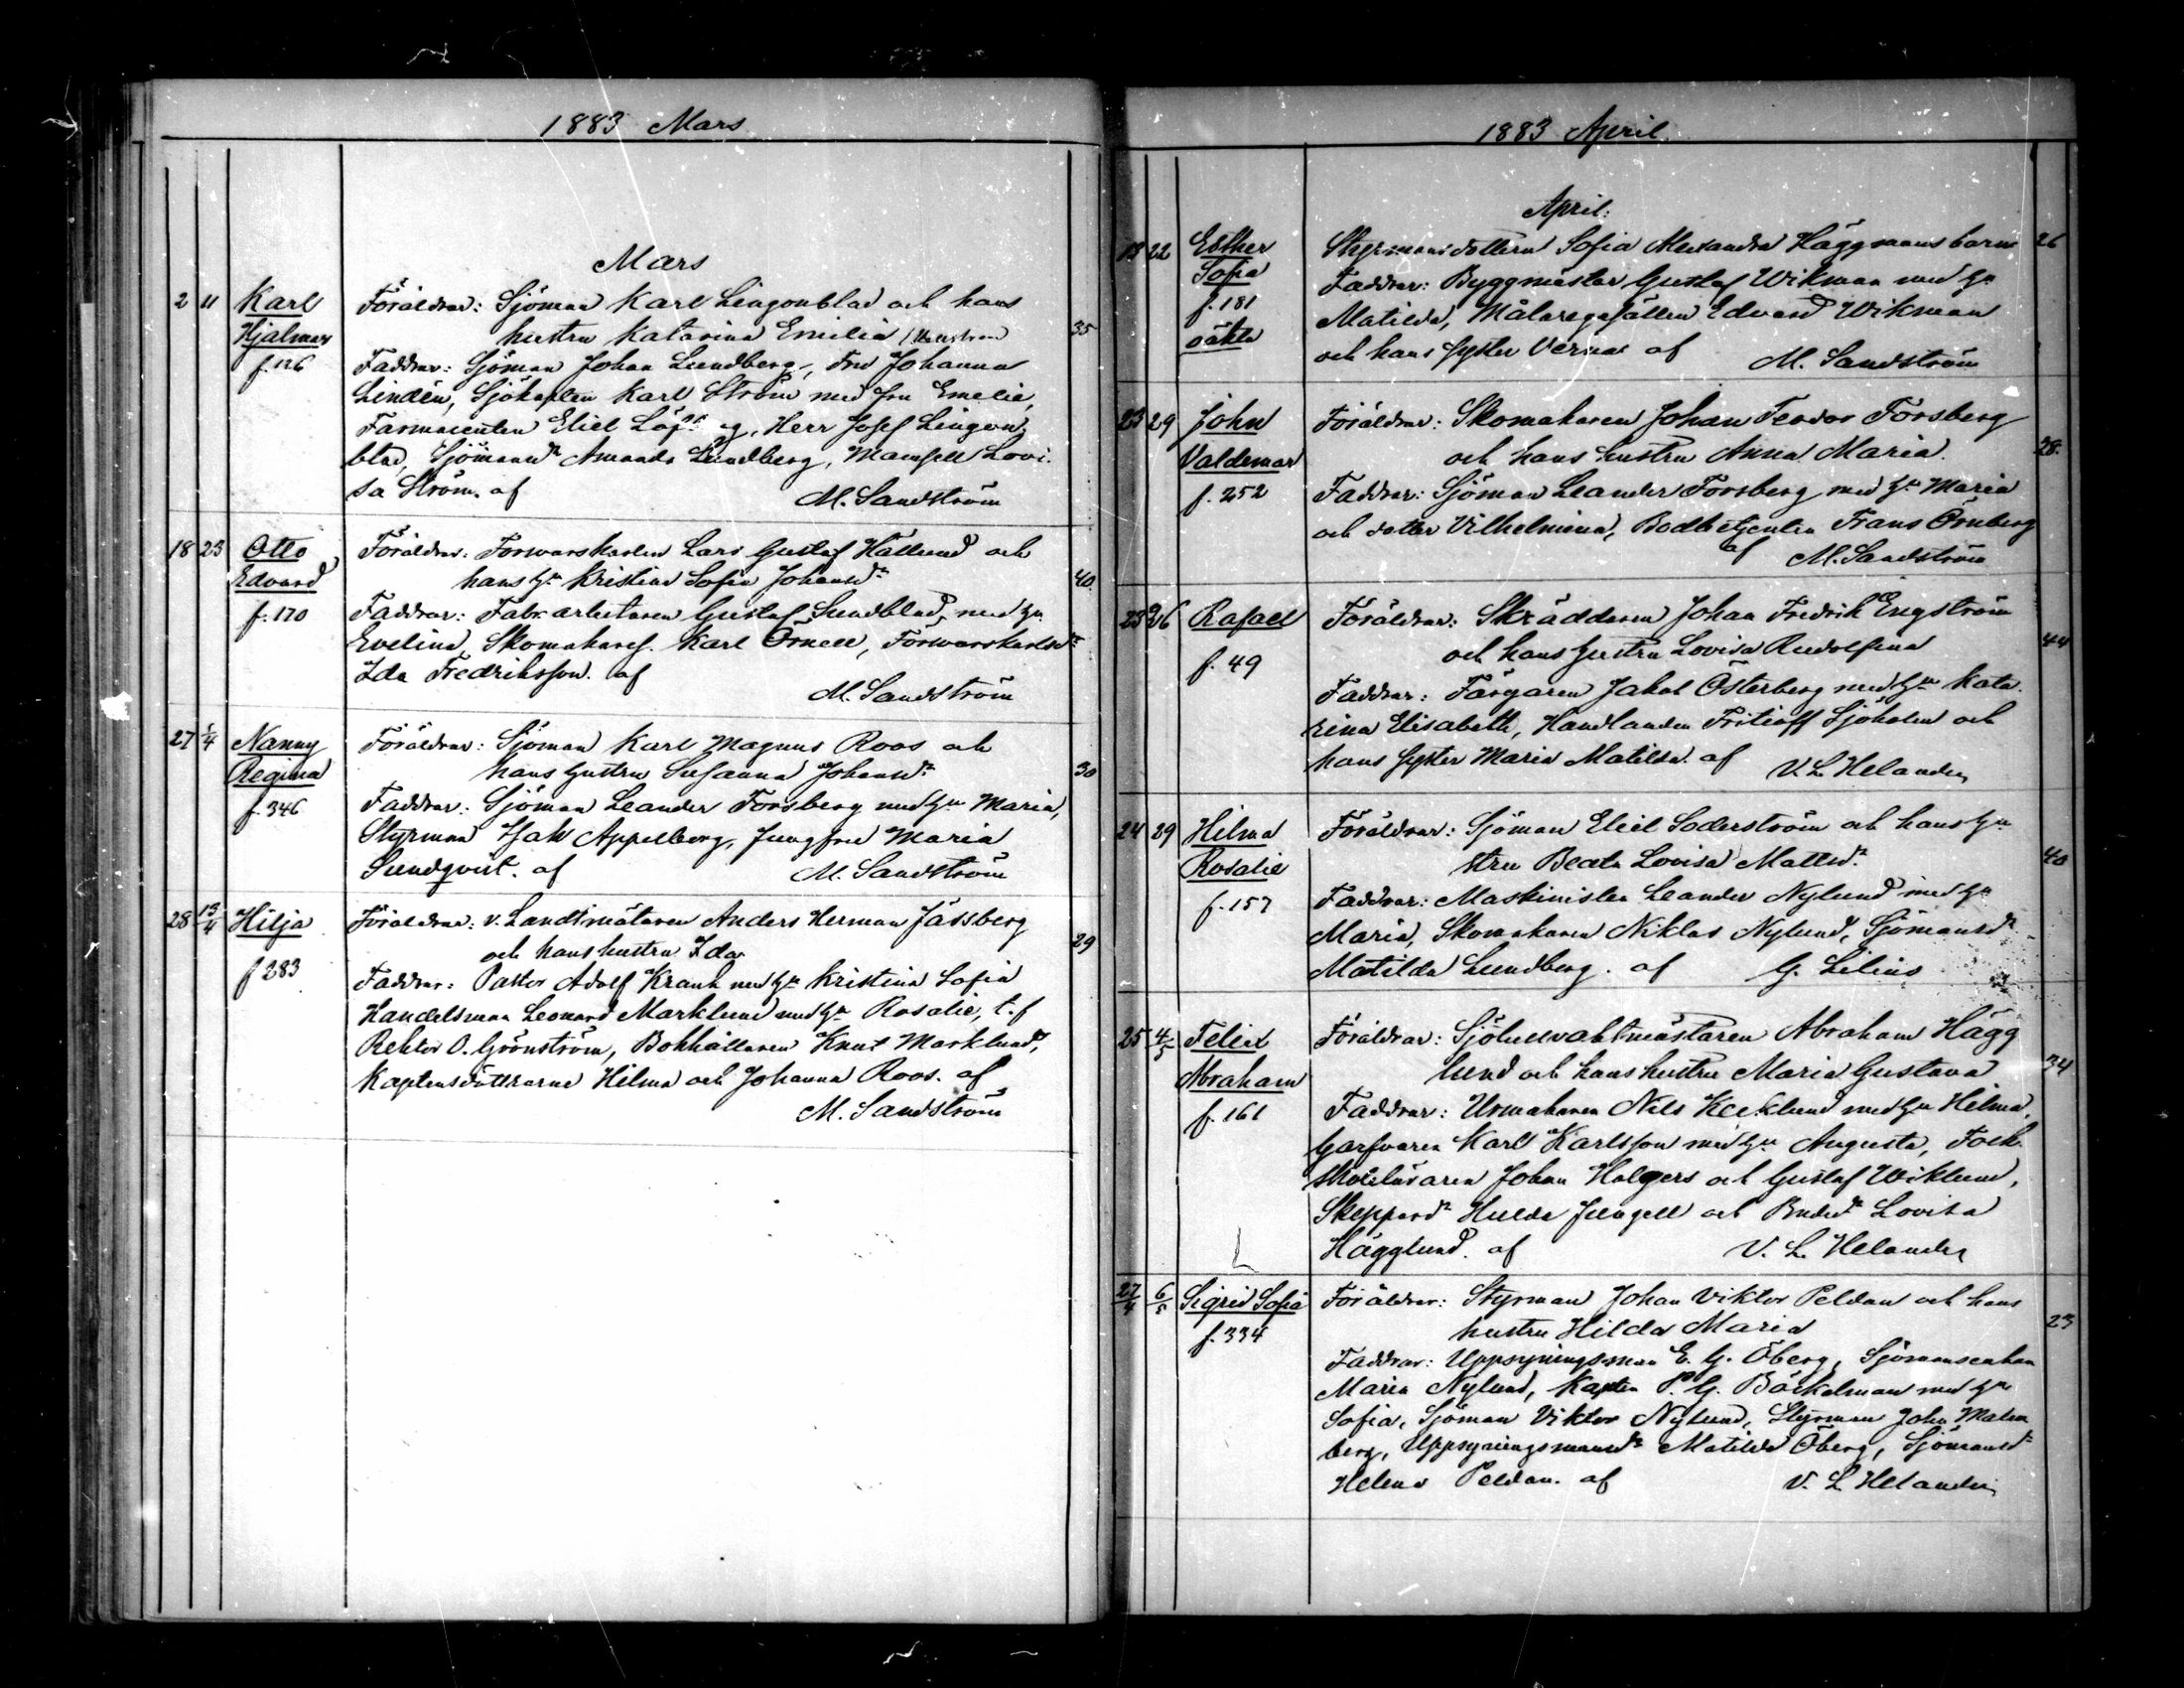 1883 Mars
Mars
2 11 Karl Föräldrar: Sjöman Karl Lingonblad och hans
Hjalmar hustru Katarina Emilia 35
f. 126 Faddrar: Sjöman Johan Lundberg, fru Johanna
Lindén, Sjökapten Karl Ström med fru Emelie,
Farmaceuten Eliel, Herr Josef Lingon
blad, Sjömansdr Amanda Lundberg, Mamsell Lovi-
sa Ström. af M. Sandström
18 23 Otto Föräldrar: Forwarskarlen Lars Gustaf Hällund och
Edvard hans hu Kristina Sofia Johansdr 40
f. 170 Faddrar: Fabr. arbetaren Gustaf Sundblad med hu
Evelina, Skomakaref. Karl Örnell, Förwarskarlsdr
Ida Fredriksson. af
M. Sandström
27 1/4 Nanny Föräldrar: Sjöman Karl Magnus Roos och
Regina hans hustru Susanna Johansdr 30
f. 346 Faddrar: Sjöman Leander Forsberg med hu Maria,
Styrman Isak Appelberg, Jungfru Maria
Sundqvist. af M. Sandström
28 15/4 Hilja Föräldrar: v. Landtmätaren Anders Herman Jässberg
och hans hustru Ida 29
f 283 Faddrar: Pastor Adolf Krank med hu Kristina Sofia
Handelsman Leonard Marklund med hu Rosalie, t. f
Rektor O. Grönström, Bokhållaren Knut Marklund,
Kaptensdöttrarne Hilma och Johanna Roos. af
M. Sandström
1883 April.
April.
18 22 Esther Styrmansdottern Sofia Alexandra Häggmans barn 26
Sofia Faddrar: Byggmästar Gustaf Wikman med hu
f. 181 Matilda, Målaregesällen Edvard Wikman
oäkta och hans syster Verna af M. Sandström
23 29 John Föräldrar: Skomakaren Johan Teodor Forsberg
Valdemar och hans hustru Anna Maria. 28.
f. 252 Faddrar: Sjöman Leander Forsberg med hu Maria
och dotter Vilhelmina, Bodbetjenten Frans Örnberg
af M. Sandström
23 26 Rafael Föräldrar: Skräddaren Johan Fredrik Engström
och hans hustru Lovisa Rudolfina 44
f. 49 Faddrar: Färgaren Jakob Österberg med hu Kata
rina Elisabeth, Handlanden Fritioff Sjöholm och
hans syster Maria Matilda. af V. L. Helander
24 29 Hilma Föräldrar: Sjöman Eliel Söderström och hans hu
Rosalie stru Beata Lovisa Mattsdr 40
f. 157 Faddrar: Maskinisten Leander Nylund med hu
Maria, Skomakaren Niklas Nylund, Sjömansdr
Matilda Lundberg. af G. Lilius
25 4/5 Felix Föräldrar: Sjötullvaktmästaren Abraham Hägg
Abraham lund och hans hustru Maria Gustava 34
f. 161 Faddrar: Urmakaren Nils Kecklund med hu Hilma,
Garfvaren Karl Karlsson med hu Augusta, Folk
skoleläraren Johan Holgers och Gustaf Wiklund,
Skeppardr Hulda Jungell och Bondedr Lovisa
Hägglund. af V. L. Helander
27/4 6/5 Sigrid Sofia Föräldrar: Styrman Johan Viktor Peldan och hans
f. 334 hustru Hilda Maria 23
Faddrar: Uppsyningsman E. G. Öberg, Sjömansenkan
Maria Nylund, Kapten P. G. Bäckelman med hu
Sofia, Sjöman Viktor Nylund, Styrman John Malm
berg, Uppsyningsmansdr Matilda Öberg, Sjömansdr
Helena Peldan. af V. L. Helander